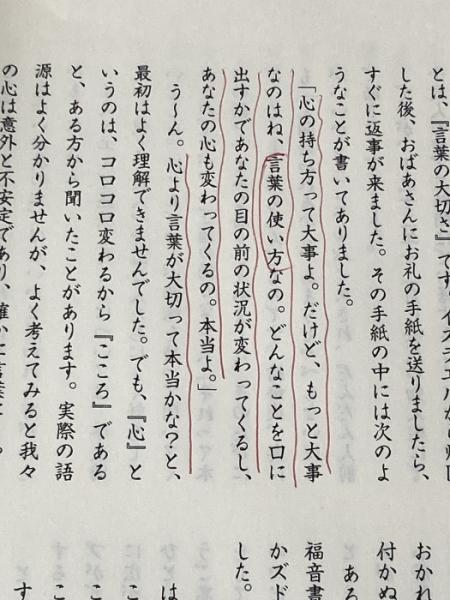 とは、『言葉の大切さ』です。イスラエルから帰国
した後、おばあさんにお礼の手紙を送りましたら、
すぐに返事が来ました。その手紙の中には次のよ
うなことが書いてありました。
「心の持ち方って大事よ。だけど、もっと大事
なのはね、言葉の使い方なの。どんなことを口に
出すかであなたの目の前の状況が変わってくるし、
あなたの心も変わってくるの。本当よ。」
う～ん。心より言葉が大切って本当かな？と、
最初はよく理解できませんでした。でも、『心』と
いうのは、コロコロ変わるから『こころ』である
と、ある方から聞いたことがあります。実際の語
源はよく分かりませんが、よく考えてみると我々
の心は意外と不安定であり、確かに言葉
おかれ
付かぬ
ある
福音書
かズド
した。